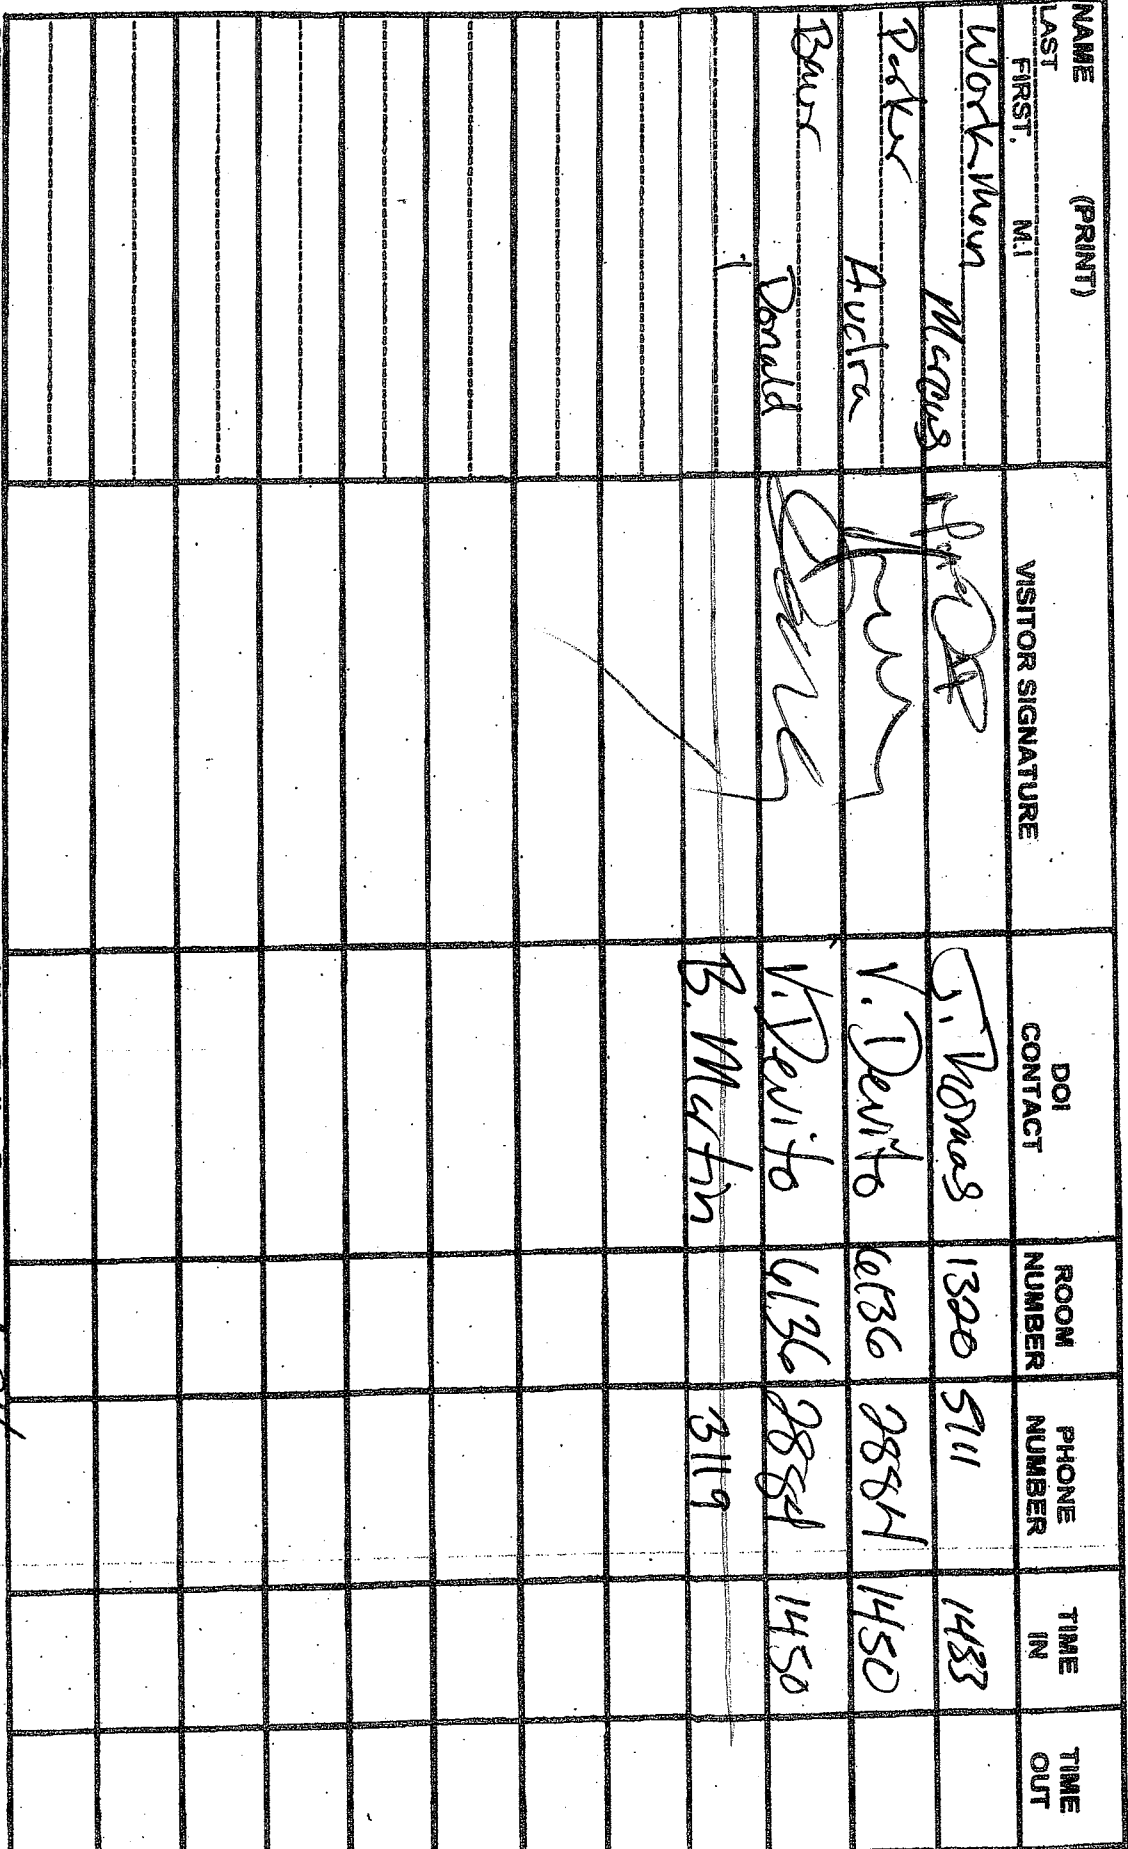 NAME (PRINT) VISITOR SIGNATURE DOI CONTACT ROOM NUMBER PHONE NUMBER TIME IN TIME OUT
LAST FIRST, M.I
Workman Marcus J. Thomas 1320 5911 1433
Parker Audra V. Devito 6136 2884 1450
Donald V. Devito 6136 2884 1450
B. Martin 3119